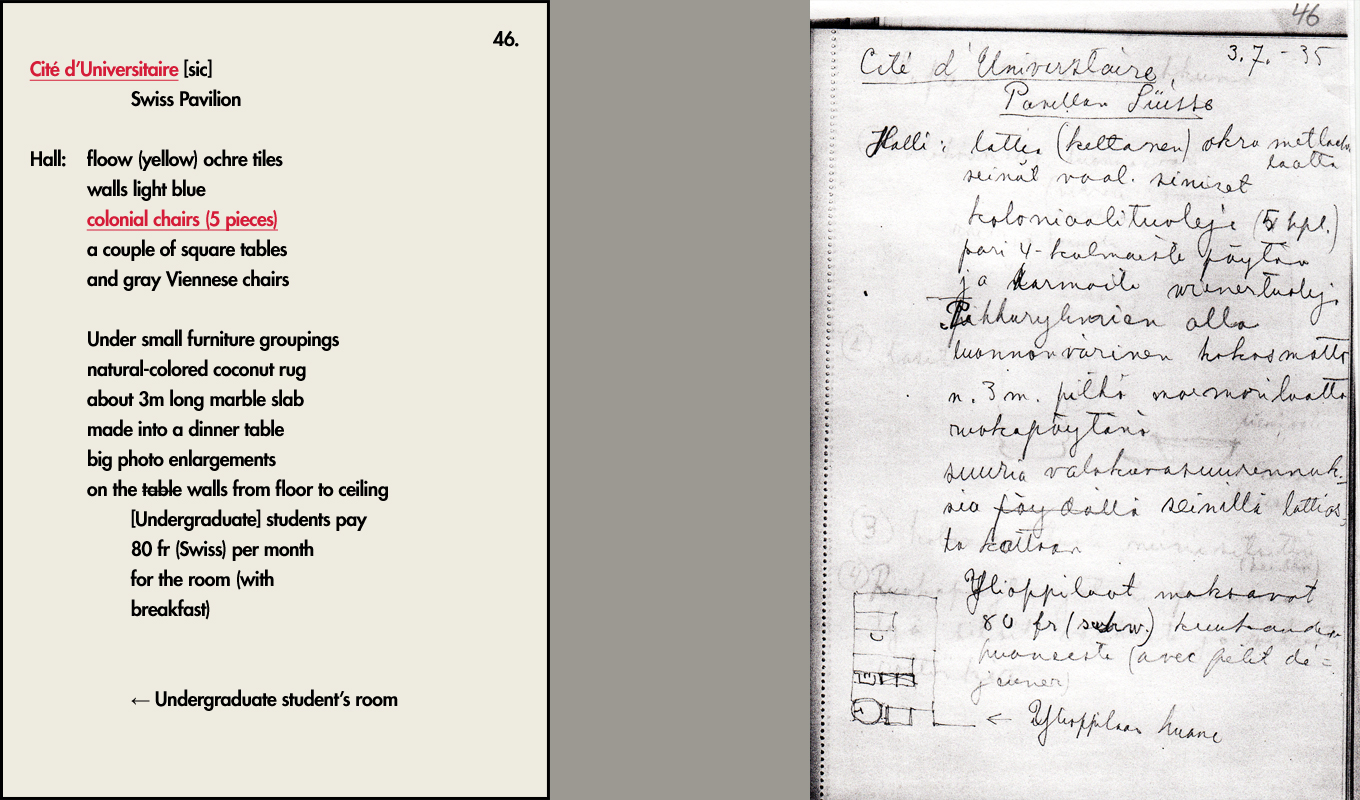 46.
Cité d'Universitaire [sic]
Swiss Pavilion
Hall: floow (yellow) ochre tiles
walls light blue
colonial chairs (5 pieces)
a couple of square tables
and gray Viennese chairs
Under small furniture groupings
natural-colored coconut rug
about 3m long marble slab
made into a dinner table
big photo enlargements
on the table walls from floor to ceiling
[Undergraduate] students pay
80 fr (Swiss) per month
for the room (with
breakfast)
← Undergraduate student's room
46
3.7.-35
Cité d'Universitaire
Pavillon Suisse
Halli: lattia (keltanen) okra
laatta
seinät vaal. siniset
koloniaalituoleja (5 kpl.)
pari 4-kulmaista pöytää
ja harmaita wienertuolej.
Pikkuryhmien alla
luonnonvärinen kokosmatto
n. 3 m. pitkä marmorilaatta
ruokapöytänä
suuria valokuvasuurennuk-
sia pöydällä seinillä lattias-
ta kattoon
Ylioppilaat maksavat
80 fr (schw.) kuukaudes
huoneesta (avec petit dé=
jeuner)
← Ylioppilaan huone